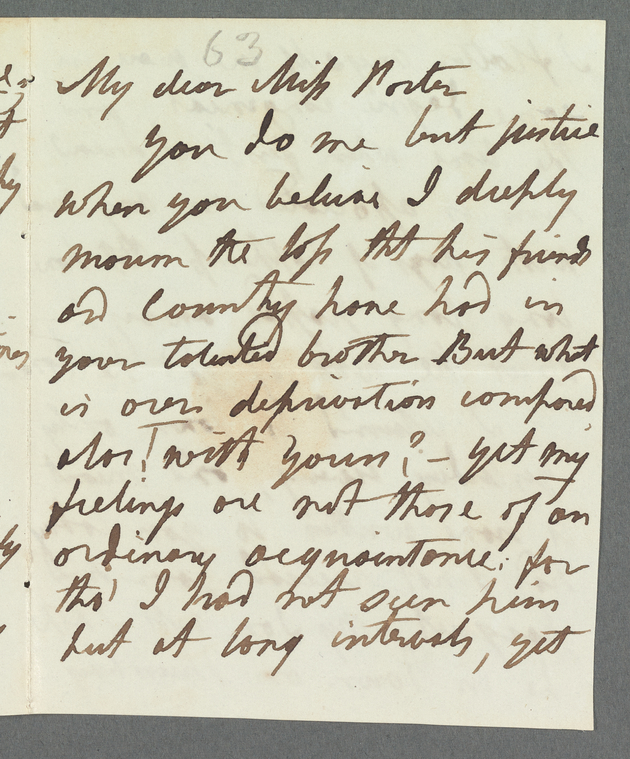 63
My dear Miss Porter
you do me but justice
when you believe I deeply
mourn the loss tht his friends
and Country have had in
your talented brother But what
is ours deprivation compared
alas! with yours? – yet my
feelings are not those of an
ordinary acquaintance: for
tho' I had not seen him
but at long intervals, yet